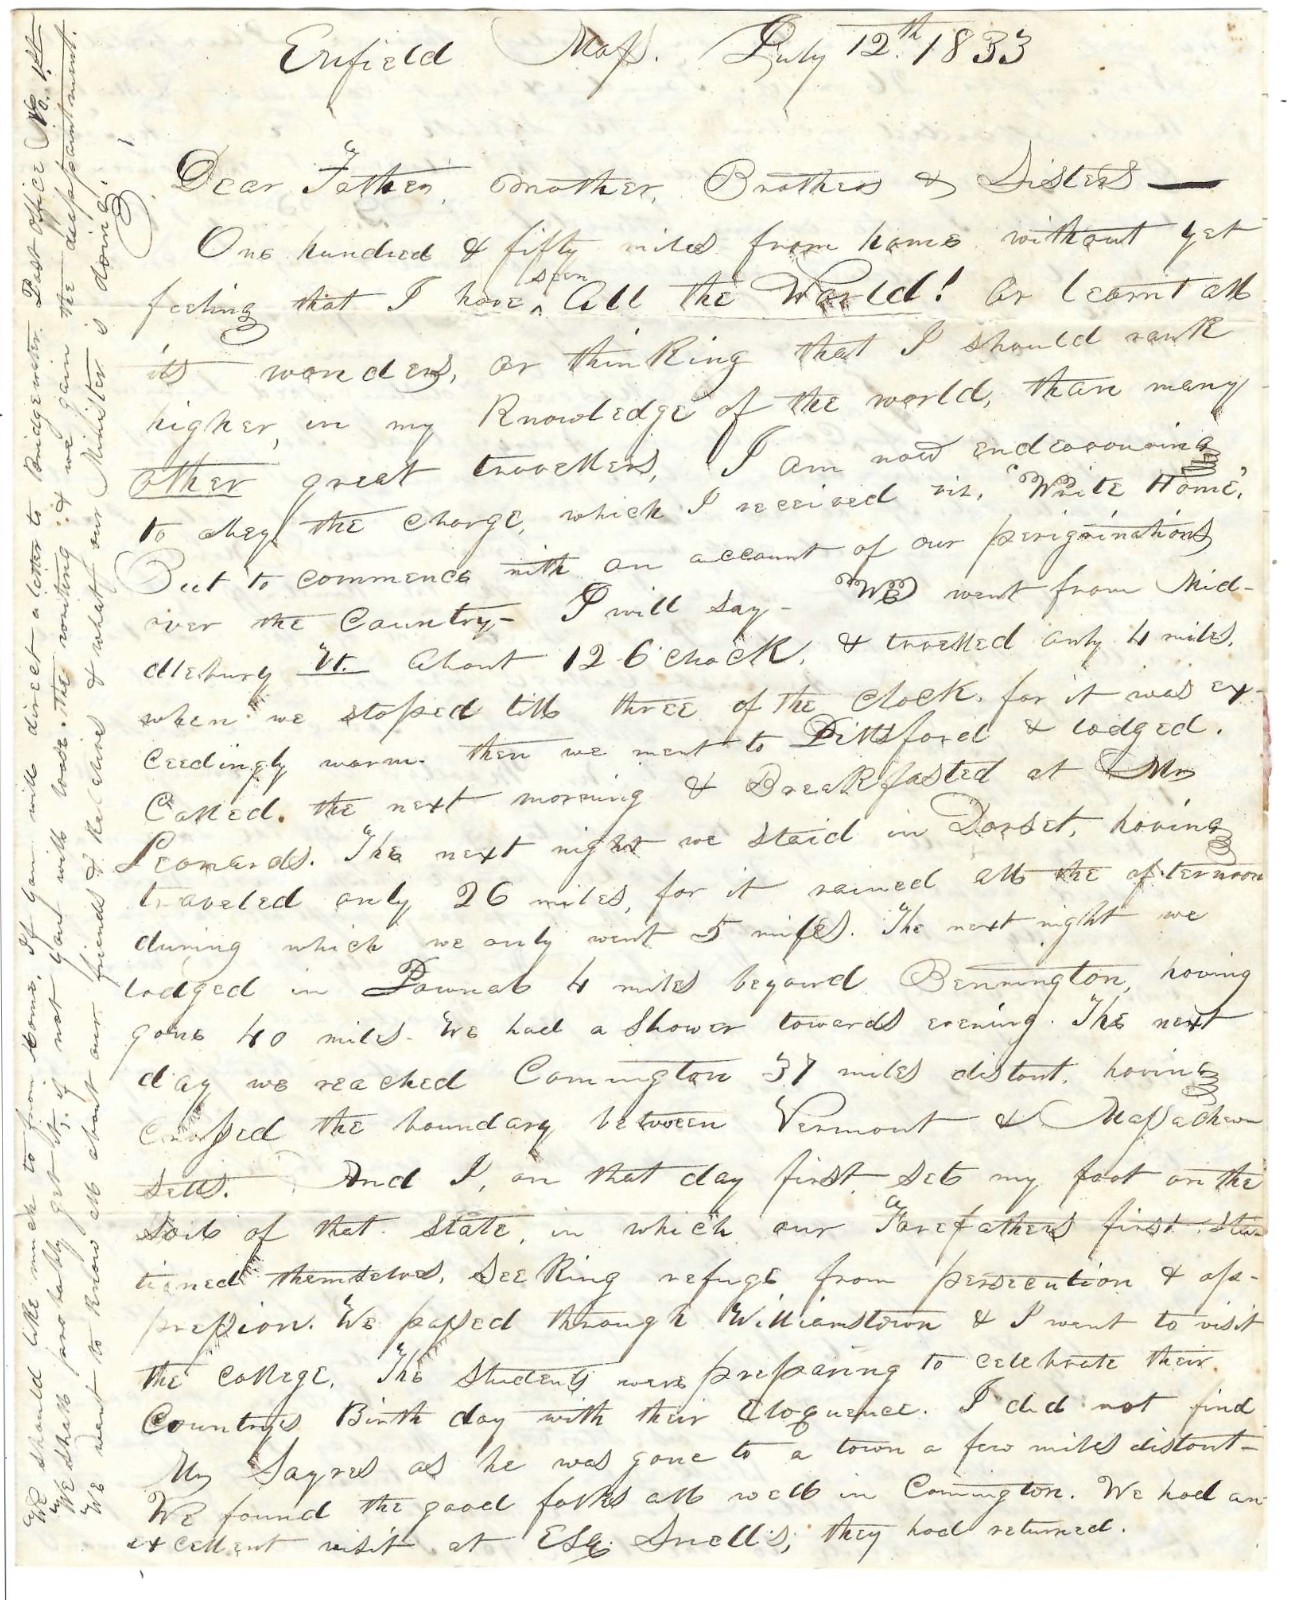 Enfield Mass. July 12th. 1833
Dear Father, Mother, Brothers & Sisters —
One hundred & fifty miles from home without yet
feeling that I have seen All the World! or learnt all
its wonders, or thinking that I should rank
higher, in my knowledge of the world, than many
other great travellers, I am now endeavouring
to obey the charge, which I received viz. "Write Home".
But to commence with an account of our periginations
over the Country – I will say – We went from Mid-
dlebury Vt. about 12 O'clock, & travelled only 4 miles,
when we stoped till three of the clock. for it was ex-
ceedingly warm. then we went to Pittsford & lodged.
Called. the next morning & Breakfasted at Mr
Leonards. The next night we staid in Dorset, having
traveled only 26 miles, for it rained all the afternoon
during which we only went 5 miles. The next night we
lodged in Pownal 4 miles beyond Bennington, having
gone 40 miles. We had a shower towards evening. The next
day we reached Comington 37 miles distant, having
crossed the boundary between Vermont & Massachu-
setts. And I, on that day first set my foot on the
soil of that state, in which our Forefathers first sta-
tioned themselves, seeking refuge from persecution & op-
pression. We passed through Williamstown & I went to visit
the college. The Students were preparing to celebrate their
Country's Birth day with their Eloquence. I did not find
Mr Sayres as he was gone to a town a few miles distant –
We found the good folks all well in Comington. We had an
excellent visit at Esq. Snell's, they had returned.
We should like much to hear from home. If you will direct a letter to Bridgewater. Post office No. 1st
We shall probably get it, if not you will loose the writing & we gain the disappointment.
We want to know all about our friends & Relatives & what our Minister is doing.